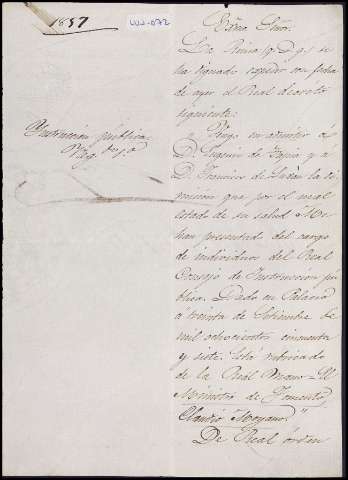 1857
UUJ-072
Instrucción pública
Neg.do 1.º
Excmo Señor:
La Reina (q. D. g.) se
ha dignado expedir con fecha
de ayer el Real decreto
siguiente:
" Vengo en admitir á
D. Eugenio de Tapia y á
D. Francisco de Luxán la di-
misión que por el mal
estado de su salud Me
han presentado del cargo
de individuos del Real
Consejo de Instrucción pú-
blica. Dado en Palacio
á treinta de Setiembre de
mil ochocientos cincuenta
y siete. Está rubricado
de la Real mano = El
Ministro de Fomento,
Claudio Moyano."
De Real órden